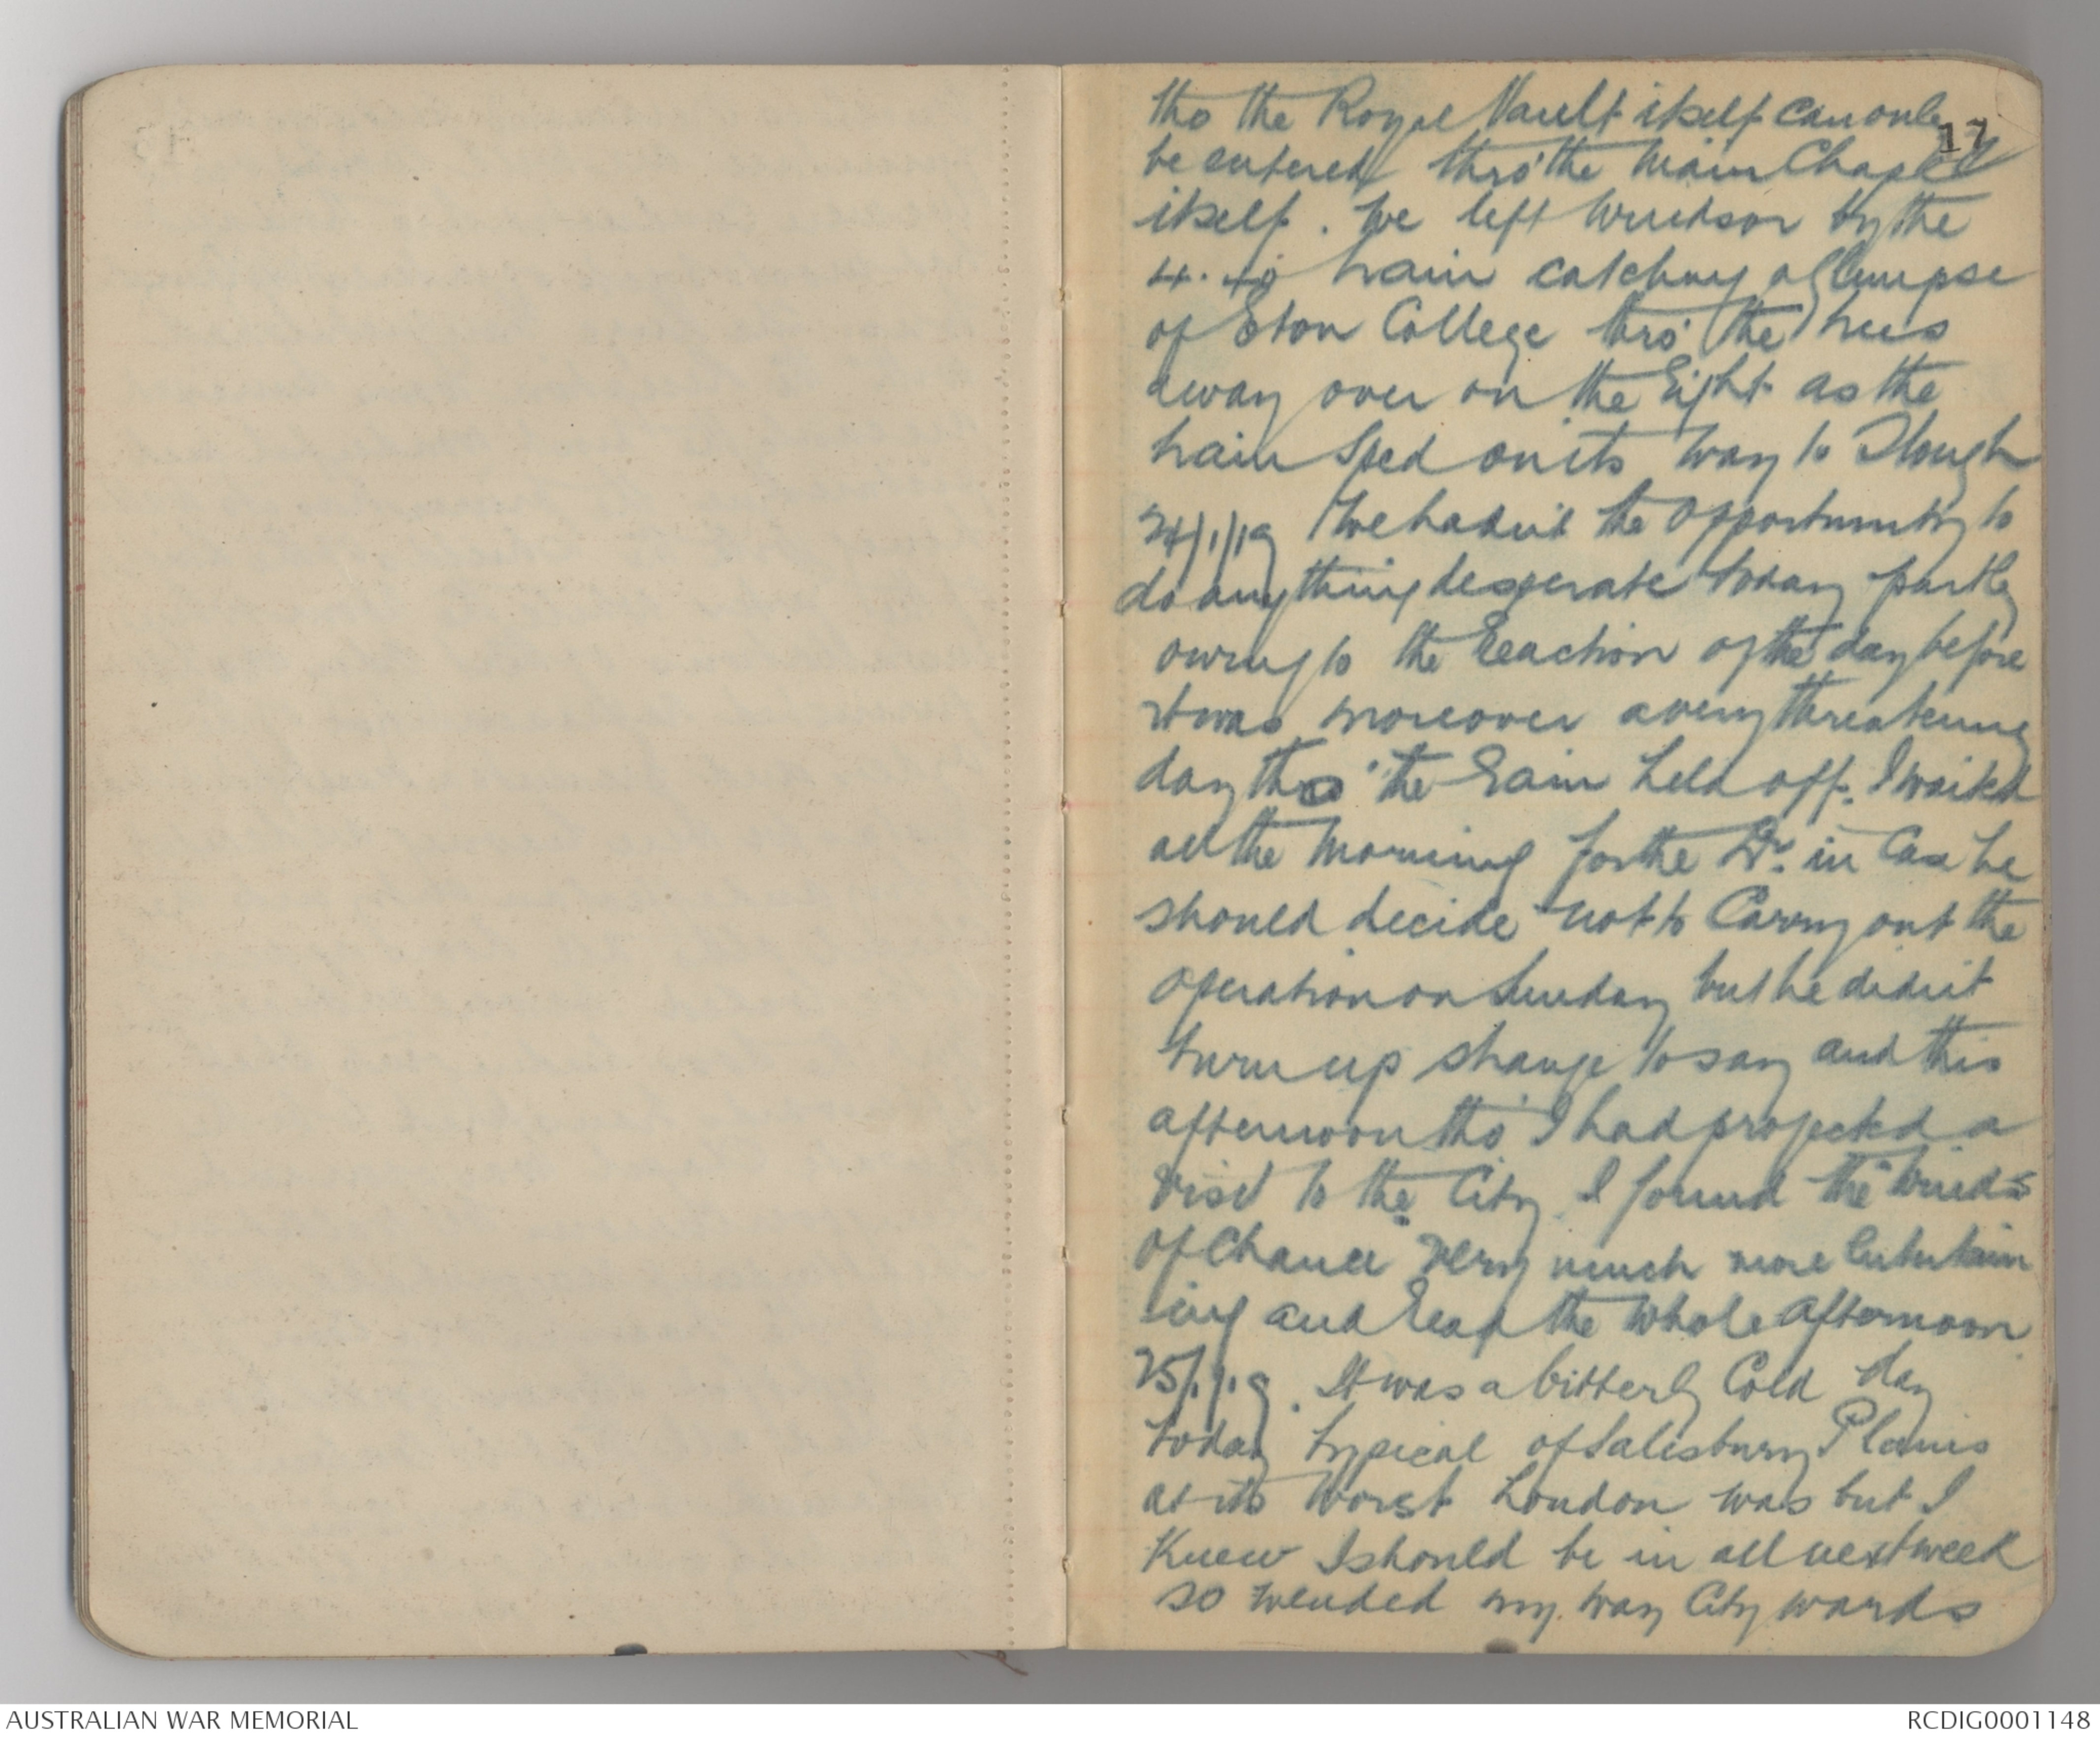 17
tho the Royal Vault itself can only
be entered thro' the Main Chapel
itself. We left Windsor by the
4.40 train catching a glimpse
of Eton College thro' the trees
away over on the right as the
train sped on its way to Slough
24/1/19 We hadn't the opportunity to
do anything desperate today partly
owing to the reaction of the day before
It was moreover a very threatening
day tho' the rain held off. I waited
all the morning for the Dr. in case he
should decide not to carry out the
operation on Sunday but he didn't
turn up strange to say and this
afternoon tho' I had projected a
visit to the City I found the "Winds
of Chance" very much more entertain
ing and read the whole afternoon
25/1/19. It was a bitterly cold day
today typical of Salisbury Plains
at its worst London was but I
knew I should be in all next week
so wended my way City wards
AUSTRALIAN WAR MEMORIAL
RCDIG0001148